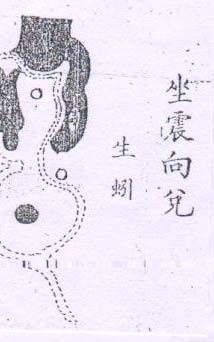 坐震向兌
生蚓